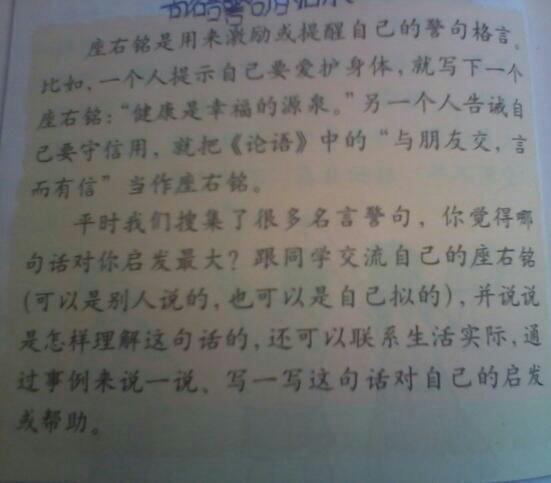 座右铭是用来激励或提醒自己的警句格言。
比如，一个人提示自己要爱护身体，就写下一个
座右铭：“健康是幸福的源泉。”另一个人告诫自
己要守信用，就把《论语》中的“与朋友交，言
而有信”当作座右铭。
平时我们搜集了很多名言警句，你觉得哪
句话对你启发最大？跟同学交流自己的座右铭
(可以是别人说的，也可以是自己拟的)，并说说
是怎样理解这句话的，还可以联系生活实际，通
过事例来说一说、写一写这句话对自己的启发
或帮助。